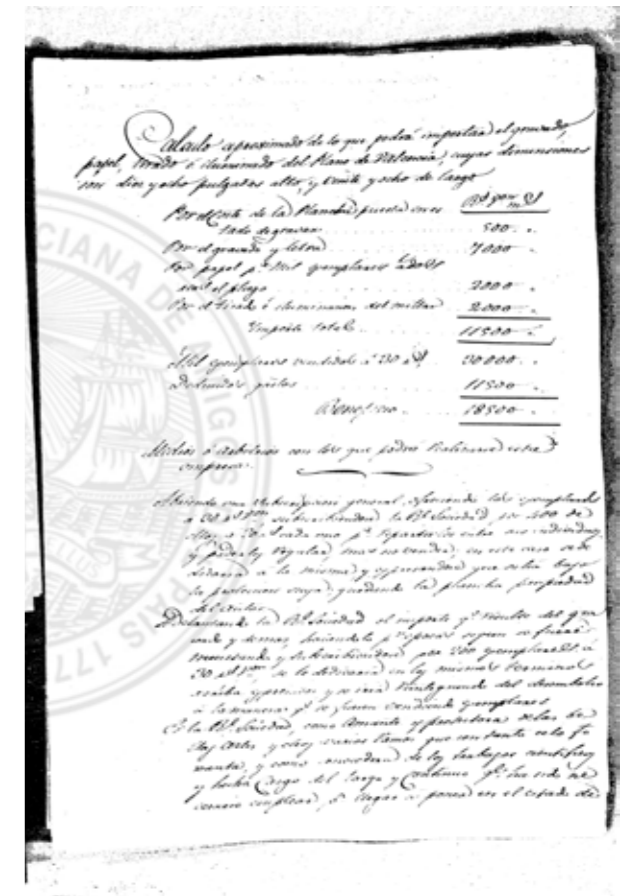 Calculo aproximado de lo que podrá importar el gravado,
papel, tirado é iluminado del Plano de Valencia, cuyas dimensiones
son diez y ocho pulgadas alto, y veinte y ocho de largo
Por el Coste de la Plancha puesta en es
tado de gravar 500
Por el gravado y letra 7000
Por papel pª mil exemplares
el pliego 2000
Por el tirado é iluminacion del millar 2000
Importe total 11500
Mil exemplares vendidos á 30 30000
Deducidos gastos 11500
Beneficio 18500
Medios ó arbitrios con los que podrá realizarse esta
empresa.
Abriendo una Subscripcion general, ofreciendo los exemplares
a 30 subscribiendose la Rl Sociedad por 200 de
ellos a 20 cada uno pª repartirlos entre sus individuos
y poderlos regalar, mas no vender; en este caso se de
dicaria a la misma y espresandose que salia bajo
la proteccion suya; quedando la plancha propiedad
del autor.
Adelantando la Rl Sociedad el importe del gra
vado y demas, haciendolo segun se fuese
necesitando y subscribiendose por 200 exemplares á
30 se le dedicaria en los mismos terminos
y se iria reintegrando del desembolso
á la manera qe se fuesen vendiendo exemplares
Si la Rl Sociedad, como Amante y protectora de las be
llas artes y otros varios ramos que constante
y como de los trabajos cientificos
y hecha Cargo del largo y Continuo qe ha sido ne
cesario emplear, pª llegar á poner en el estado de
CIANA DE AMIGOS PAIS 177